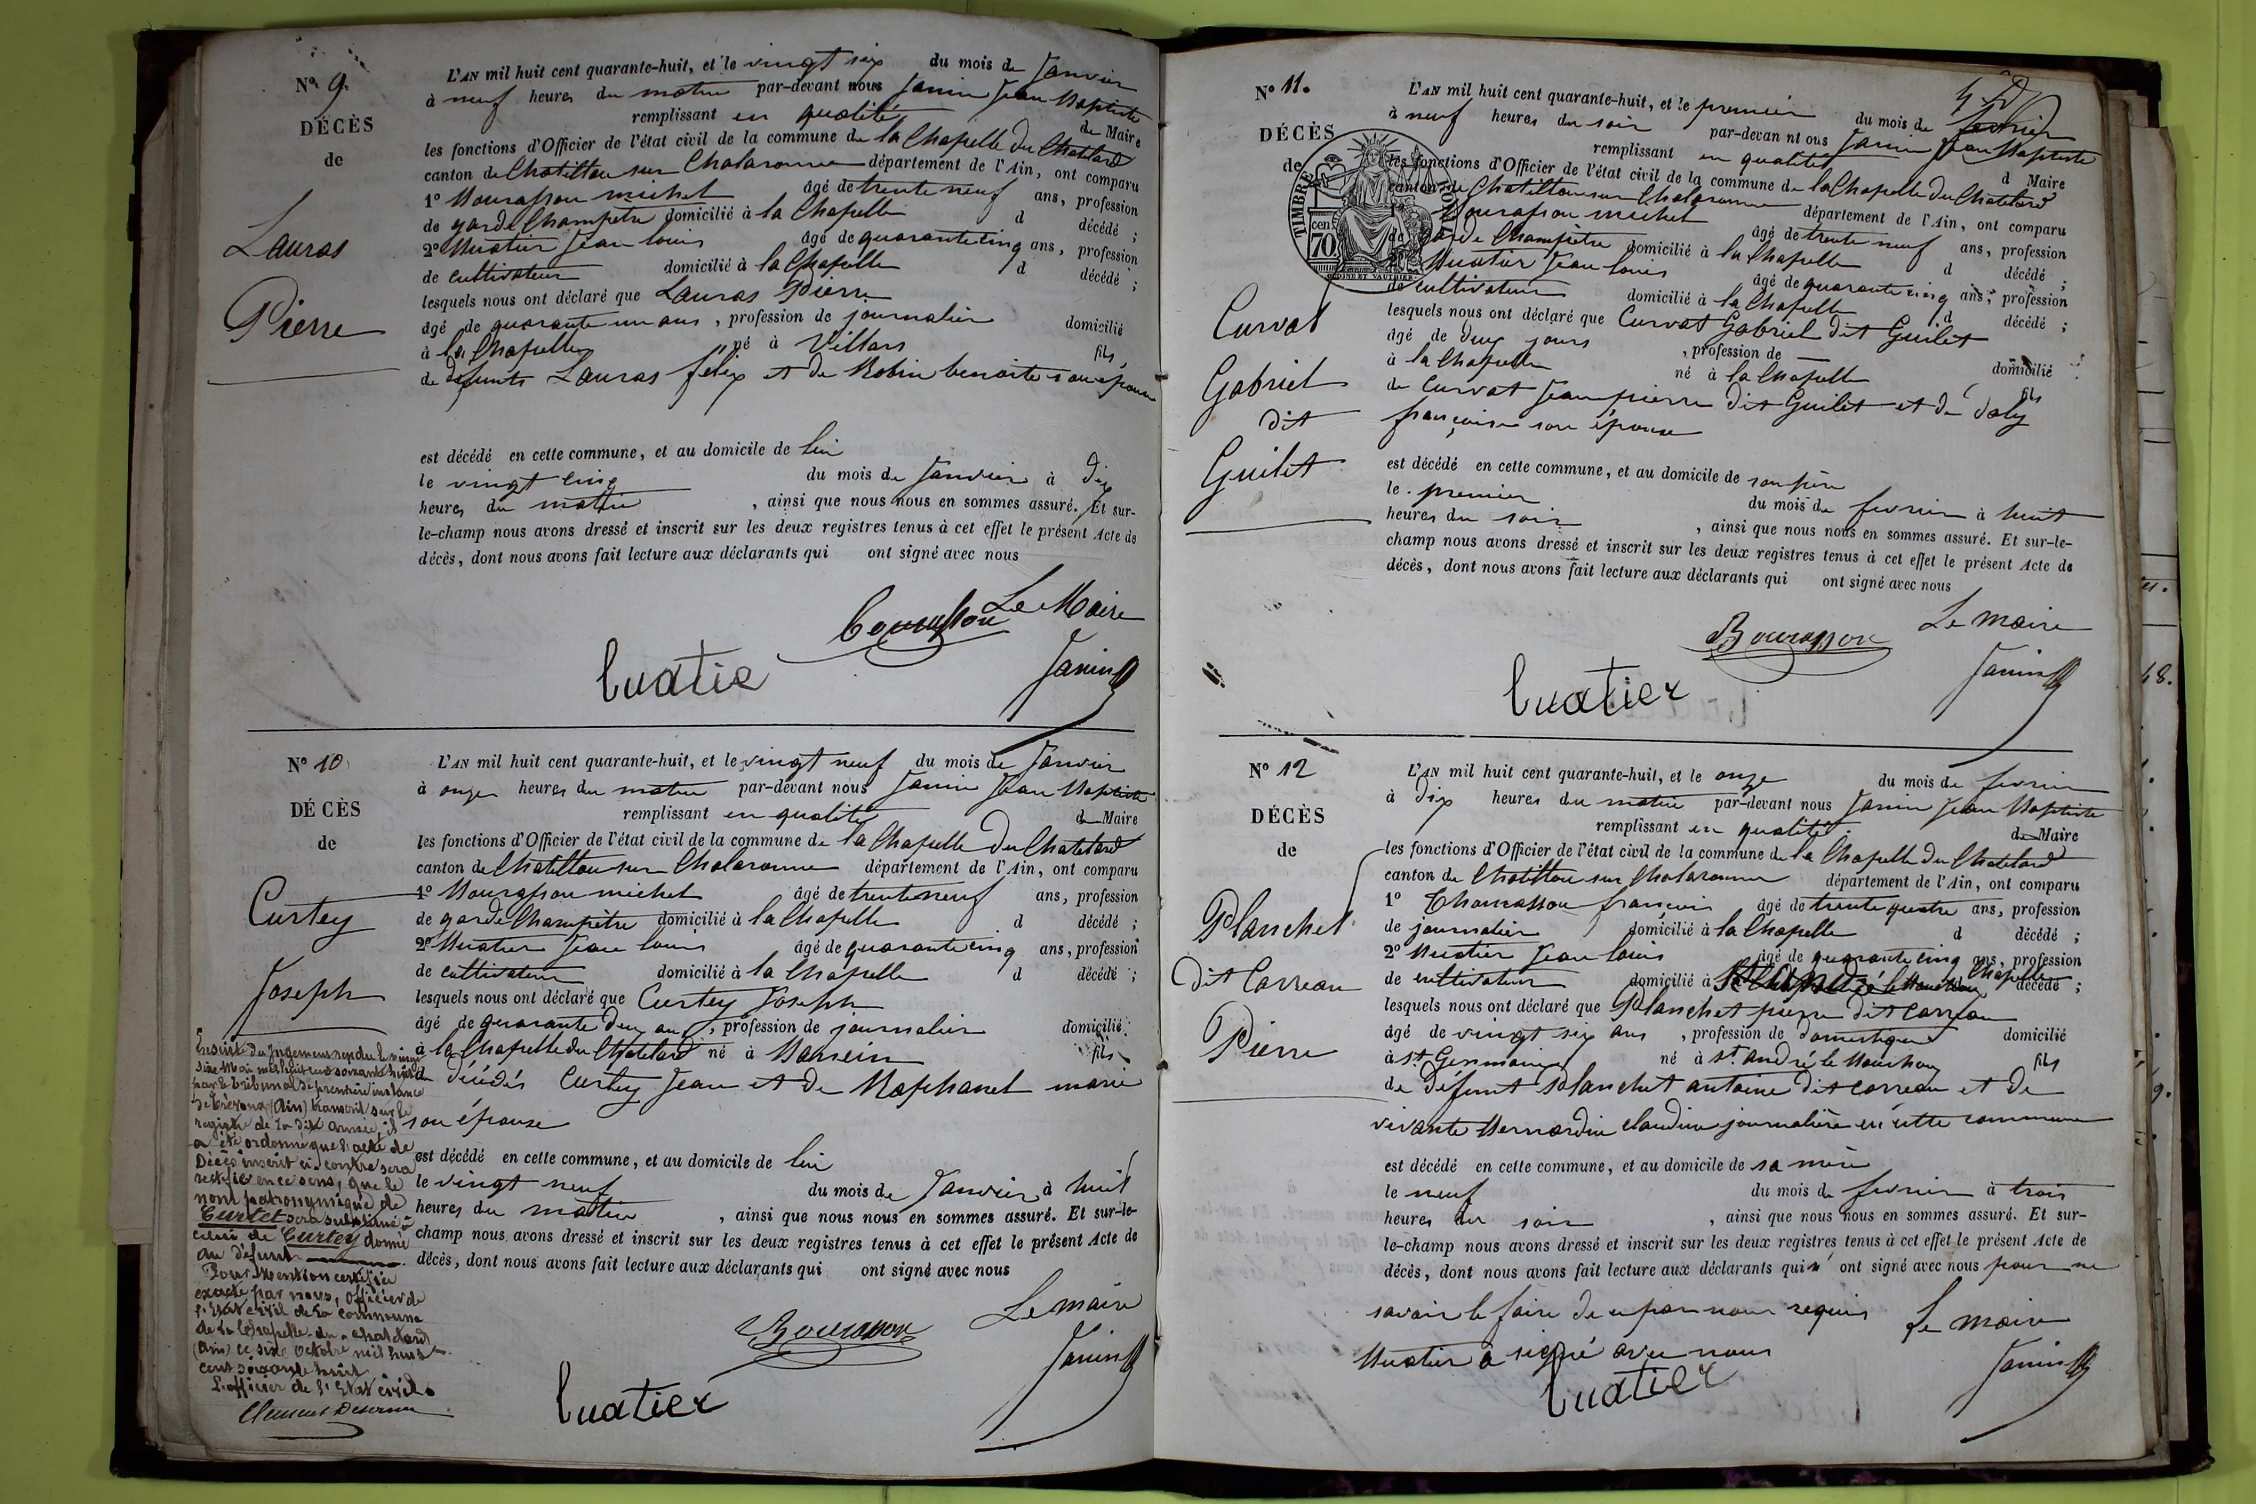 Nº 9.
DÉCÈS
de
Lauras
Pierre
L'AN mil huit cent quarante-huit, et le vingt six du mois de Janvier
à neuf heures du matin par-devant nous Janin Jean Baptiste
remplissant en qualité de Maire
les fonctions d'Officier de l'état civil de la commune de la Chapelle du Chatelard
canton de Chatillon sur Chalaronne département de l'Ain, ont comparu
1º Bourasson michel âgé de trente neuf ans, profession
de garde Champetre domicilié à la Chapelle d décédé ;
2º Buatier Jean louis âgé de quarante cinq ans, profession
de cultivateur domicilié à la Chapelle d décédé ;
lesquels nous ont déclaré que Lauras Pierre
âgé de quarante un ans, profession de journalier domicilié
à la Chapelle né à Villars fils
de defunts Lauras félix et de Robin benoite son épouse
est décédé en cette commune, et au domicile de lui
le vingt cinq du mois de Janvier à dix
heures du matin, ainsi que nous nous en sommes assuré. Et sur-
le-champ nous avons dressé et inscrit sur les deux registres tenus à cet effet le présent Acte de
décès, dont nous avons fait lecture aux déclarants qui ont signé avec nous
Le Maire
Bourasson
Buatie
Janin
Nº 10
DÉCÈS
de
Curtey
Joseph
L'AN mil huit cent quarante-huit, et le vingt neuf du mois de Janvier
à onze heures du matin par-devant nous Janin Jean Baptiste
remplissant en qualité de Maire
les fonctions d'Officier de l'état civil de la commune de la Chapelle du Chatelard
canton de Chatillon sur Chalaronne département de l'Ain, ont comparu
1º Bourasson michel âgé de trente neuf ans, profession
de garde Champêtre domicilié à la Chapelle d décédé ;
2º Buatier Jean louis âgé de quarante cinq ans, profession
de cultivateur domicilié à la Chapelle d décédé ;
lesquels nous ont déclaré que Curtey Joseph
âgé de quarante deux ans, profession de journalier domicilié
à la Chapelle du Chatelard né à Baneins fils
de décédés Curtey Jean et de Raphanel marie
son épouse
est décédé en cette commune, et au domicile de lui
le vingt neuf du mois de Janvier à huit
heures du matin, ainsi que nous nous en sommes assuré. Et sur-le-
champ nous avons dressé et inscrit sur les deux registres tenus à cet effet le présent Acte de
décès, dont nous avons fait lecture aux déclarants qui ont signé avec nous
Le maire
Bourasson
Buatier
Janin
Ensuite du Jugement rendu le vingt
six Mai mil huit cent soixante huit
par le tribunal de première instance
de Trévoux (Ain) transcrit sur le
registre de la dite année, il
a été ordonné que l'acte de
Décès inscrit ci-contre sera
rectifié en ce sens, que le
nom patronymique de
Curtet sera substitué à
celui de Curtey donné
au défunt
Pour Mention certifiée
exacte par nous, Officier de
l'Etat civil de la commune
de la Chapelle-du-Chatelard
(Ain) ce six Octobre mil huit
cent soixante huit
L'officier de l'Etat civil.
Nº 11.
DÉCÈS
de
TIMBRE
cen
70
Curvat
Gabriel
dit
Guilet
L'AN mil huit cent quarante-huit, et le premier du mois de fevrier
à neuf heures du soir par-devan nt ous Janin Jean Baptiste
remplissant en qualité d Maire
les fonctions d'Officier de l'état civil de la commune de la Chapelle du Chatelard
canton de Chatillon sur Chalaronne département de l'Ain, ont comparu
Bourasson michel âgé de trente neuf ans, profession
de garde Champêtre domicilié à la Chapelle d décédé ;
Buatier Jean louis âgé de quarante cinq ans, profession
de cultivateur domicilié à la Chapelle d décédé ;
lesquels nous ont déclaré que Curvat Gabriel dit Guilet
âgé de deux jours, profession de — domicilié
à la Chapelle né à la Chapelle fils
de Curvat Jean pierre dit Guilet et de Joly
françoise son épouse
est décédé en cette commune, et au domicile de son père
le premier du mois de fevrier à huit
heures du soir, ainsi que nous nous en sommes assuré. Et sur-le-
champ nous avons dressé et inscrit sur les deux registres tenus à cet effet le présent Acte de
décès, dont nous avons fait lecture aux déclarants qui ont signé avec nous
Le maire
Bourasson
Buatier
Janin
Nº 12
DÉCÈS
de
Planchet
dit Carreau
Pierre
L'AN mil huit cent quarante-huit, et le onze du mois de fevrier
à dix heures du matin par-devant nous Janin Jean Baptiste
remplissant en qualité de Maire
les fonctions d'Officier de l'état civil de la commune de la Chapelle du Chatelard
canton de Chatillon sur Chalaronne département de l'Ain, ont comparu
1º Thomasson françois âgé de trente quatre ans, profession
de journalier domicilié à la Chapelle d décédé ;
2º Buatier Jean louis âgé de quarante cinq ans, profession
de cultivateur domicilié à Chapelle décédé ;
lesquels nous ont déclaré que Planchet pierre dit Carreau
âgé de vingt six ans, profession de domestique domicilié
à St Germain né à St. André le Bouchoux fils
de défunt Planchet antoine dit carreau et de
vivante Bernardin claudine journalière en cette commune
est décédé en cette commune, et au domicile de sa mère
le neuf du mois de fevrier à trois
heures du soir, ainsi que nous nous en sommes assuré. Et sur-
le-champ nous avons dressé et inscrit sur les deux registres tenus à cet effet le présent Acte de
décès, dont nous avons fait lecture aux déclarants qui n' ont signé avec nous pour ne
savoir le faire de ce par nous requis
Buatier a signé avec nous
Le maire
Buatier
Janin